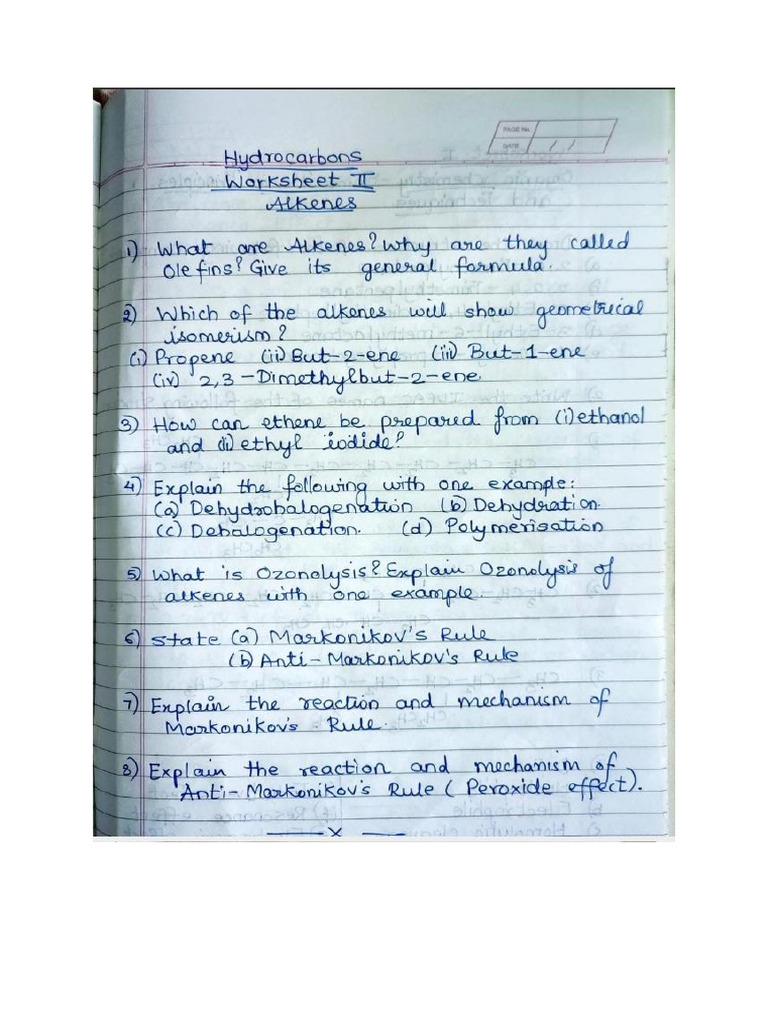 PAGE No.
DATE / /
Hydrocarbons
Worksheet II
Alkenes
1) What are Alkenes? Why are they called
Olefins? Give its general formula.
2) Which of the alkenes will show geometrical
isomerism?
(i) Propene (ii) But-2-ene (iii) But-1-ene
(iv) 2,3-Dimethylbut-2-ene
3) How can ethene be prepared from (i) ethanol
and (ii) ethyl iodide?
4) Explain the following with one example:
(a) Dehydrohalogenation (b) Dehydration.
(c) Dehalogenation. (d) Polymerisation
5) What is Ozonolysis? Explain Ozonolysis of
alkenes with one example
6) State (a) Markonikov's Rule
(b) Anti-Markonikov's Rule
7) Explain the reaction and mechanism of
Markonikov's Rule.
8) Explain the reaction and mechanism of
Anti-Markonikov's Rule (Peroxide effect).
—x—